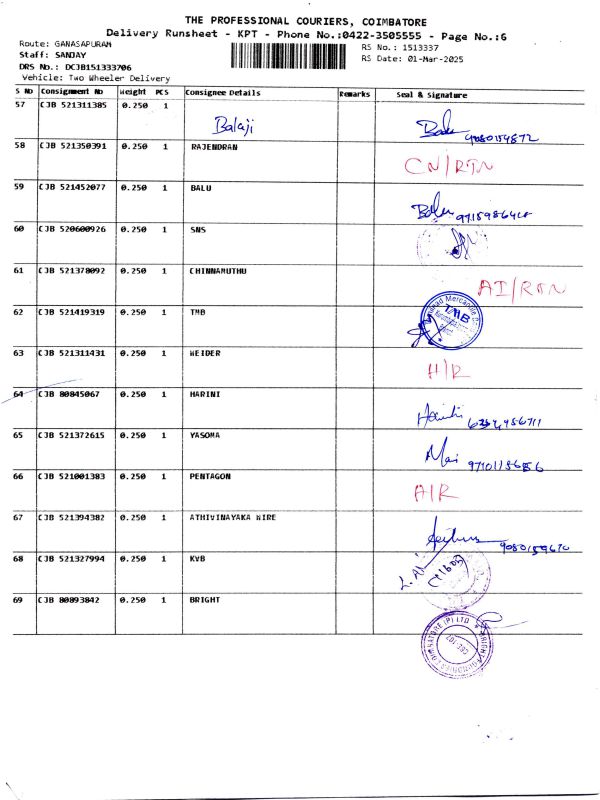 THE PROFESSIONAL COURIERS, COIMBATORE
Delivery Runsheet - KPT - Phone No.:0422-3505555 - Page No.:6
Route: GANASAPURAM
Staff: SANJAY
DRS No.: DCJB151333706
Vehicle: Two Wheeler Delivery
RS No.: 1513337
RS Date: 01-Mar-2025
S No Consignment No Weight PCS Consignee Details Remarks Seal & Signature
57 CJB 521311385 0.250 1 Balaji 9080159872
58 CJB 521350391 0.250 1 RAJENDRAN CN/RTN
59 CJB 521452077 0.250 1 BALU
60 CJB 520600926 0.250 1 SNS
61 CJB 521378092 0.250 1 CHINNAMUTHU AI/RTN
62 CJB 521419319 0.250 1 TMB TMB
63 CJB 521311431 0.250 1 WEIDER H/R
64 CJB 80845067 0.250 1 HARINI
65 CJB 521372615 0.250 1 YASODA
66 CJB 521001383 0.250 1 PENTAGON A/R
67 CJB 521394382 0.250 1 ATHIVINAYAKA WIRE
68 CJB 521327994 0.250 1 KVB
69 CJB 80893842 0.250 1 BRIGHT